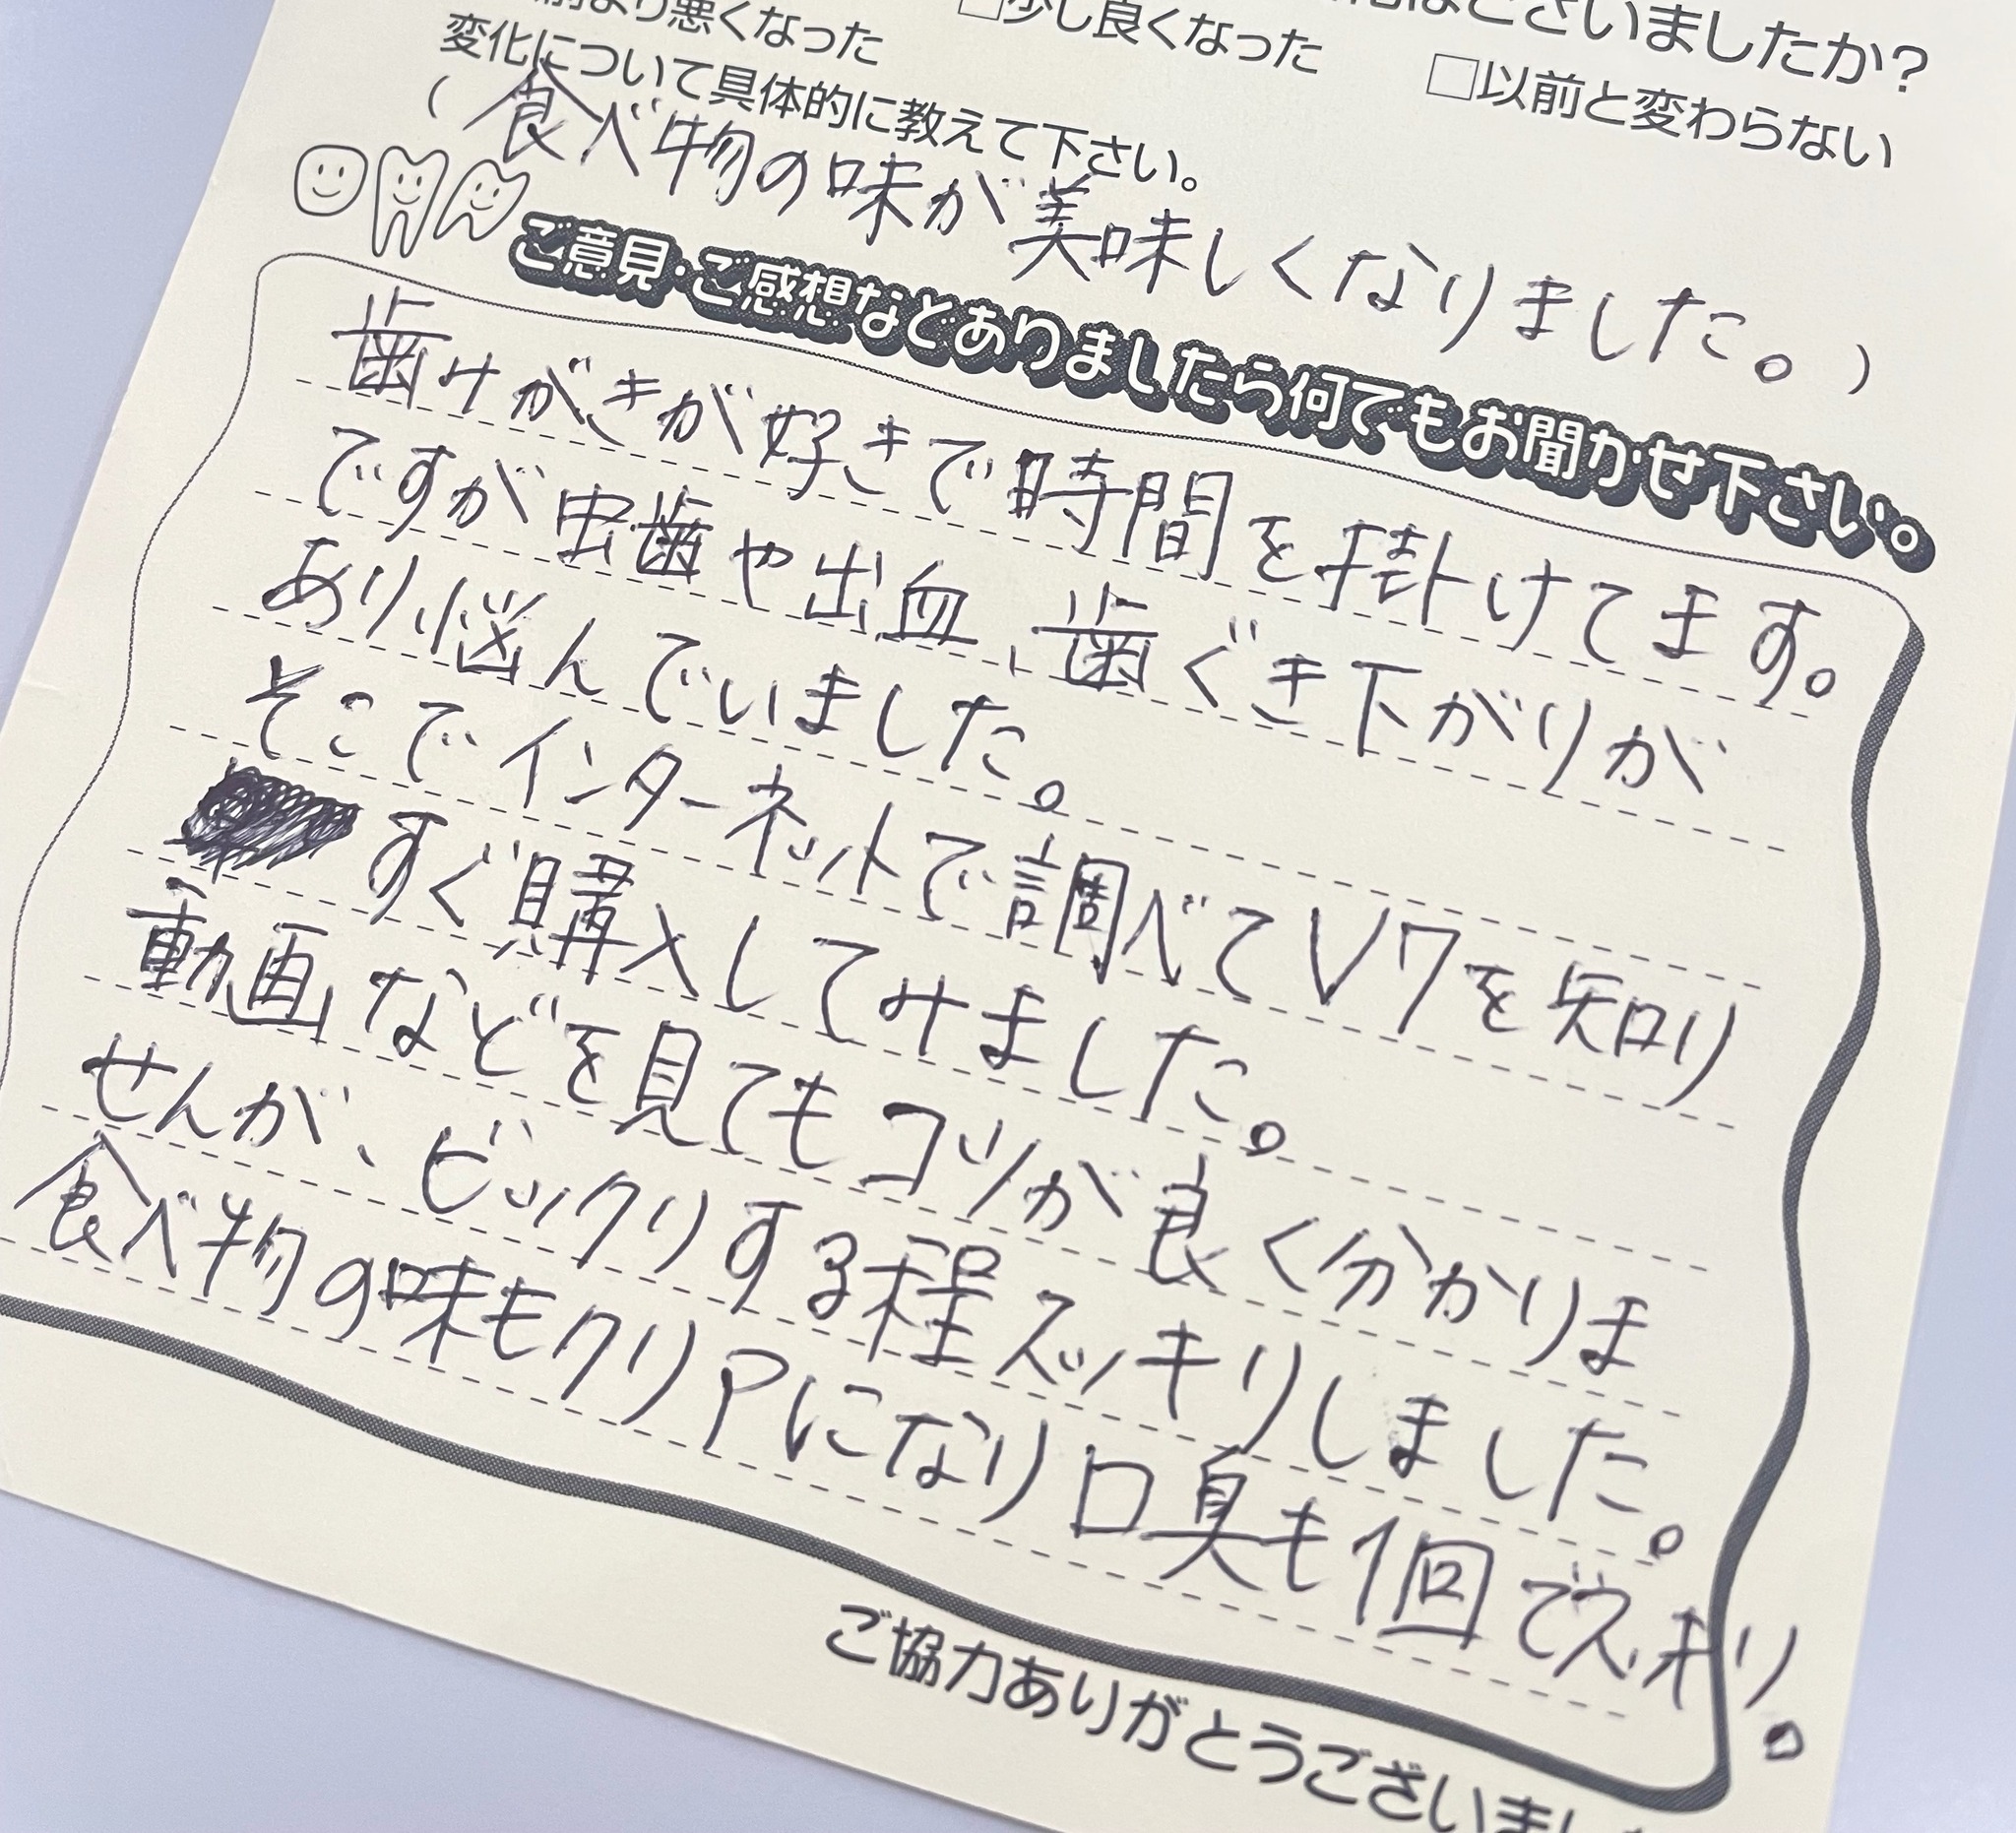 ございましたか?
より悪くなった □少し良くなった □以前と変わらない
変化について具体的に教えて下さい。
(食べ物の味が美味しくなりました。)
ご意見・ご感想などありましたら何でもお聞かせ下さい。
歯みがきが好きで時間を掛けてます。
ですが虫歯や出血、歯ぐき下がりが
あり悩んでいました。
そこでインターネットで調べてV7を知り
すぐ購入してみました。
動画などを見てもコツが良く分かりま
せんが、ビックリする程スッキリしました。
食べ物の味もクリアになり口臭も1回でスッキリ。
ご協力ありがとうございまし